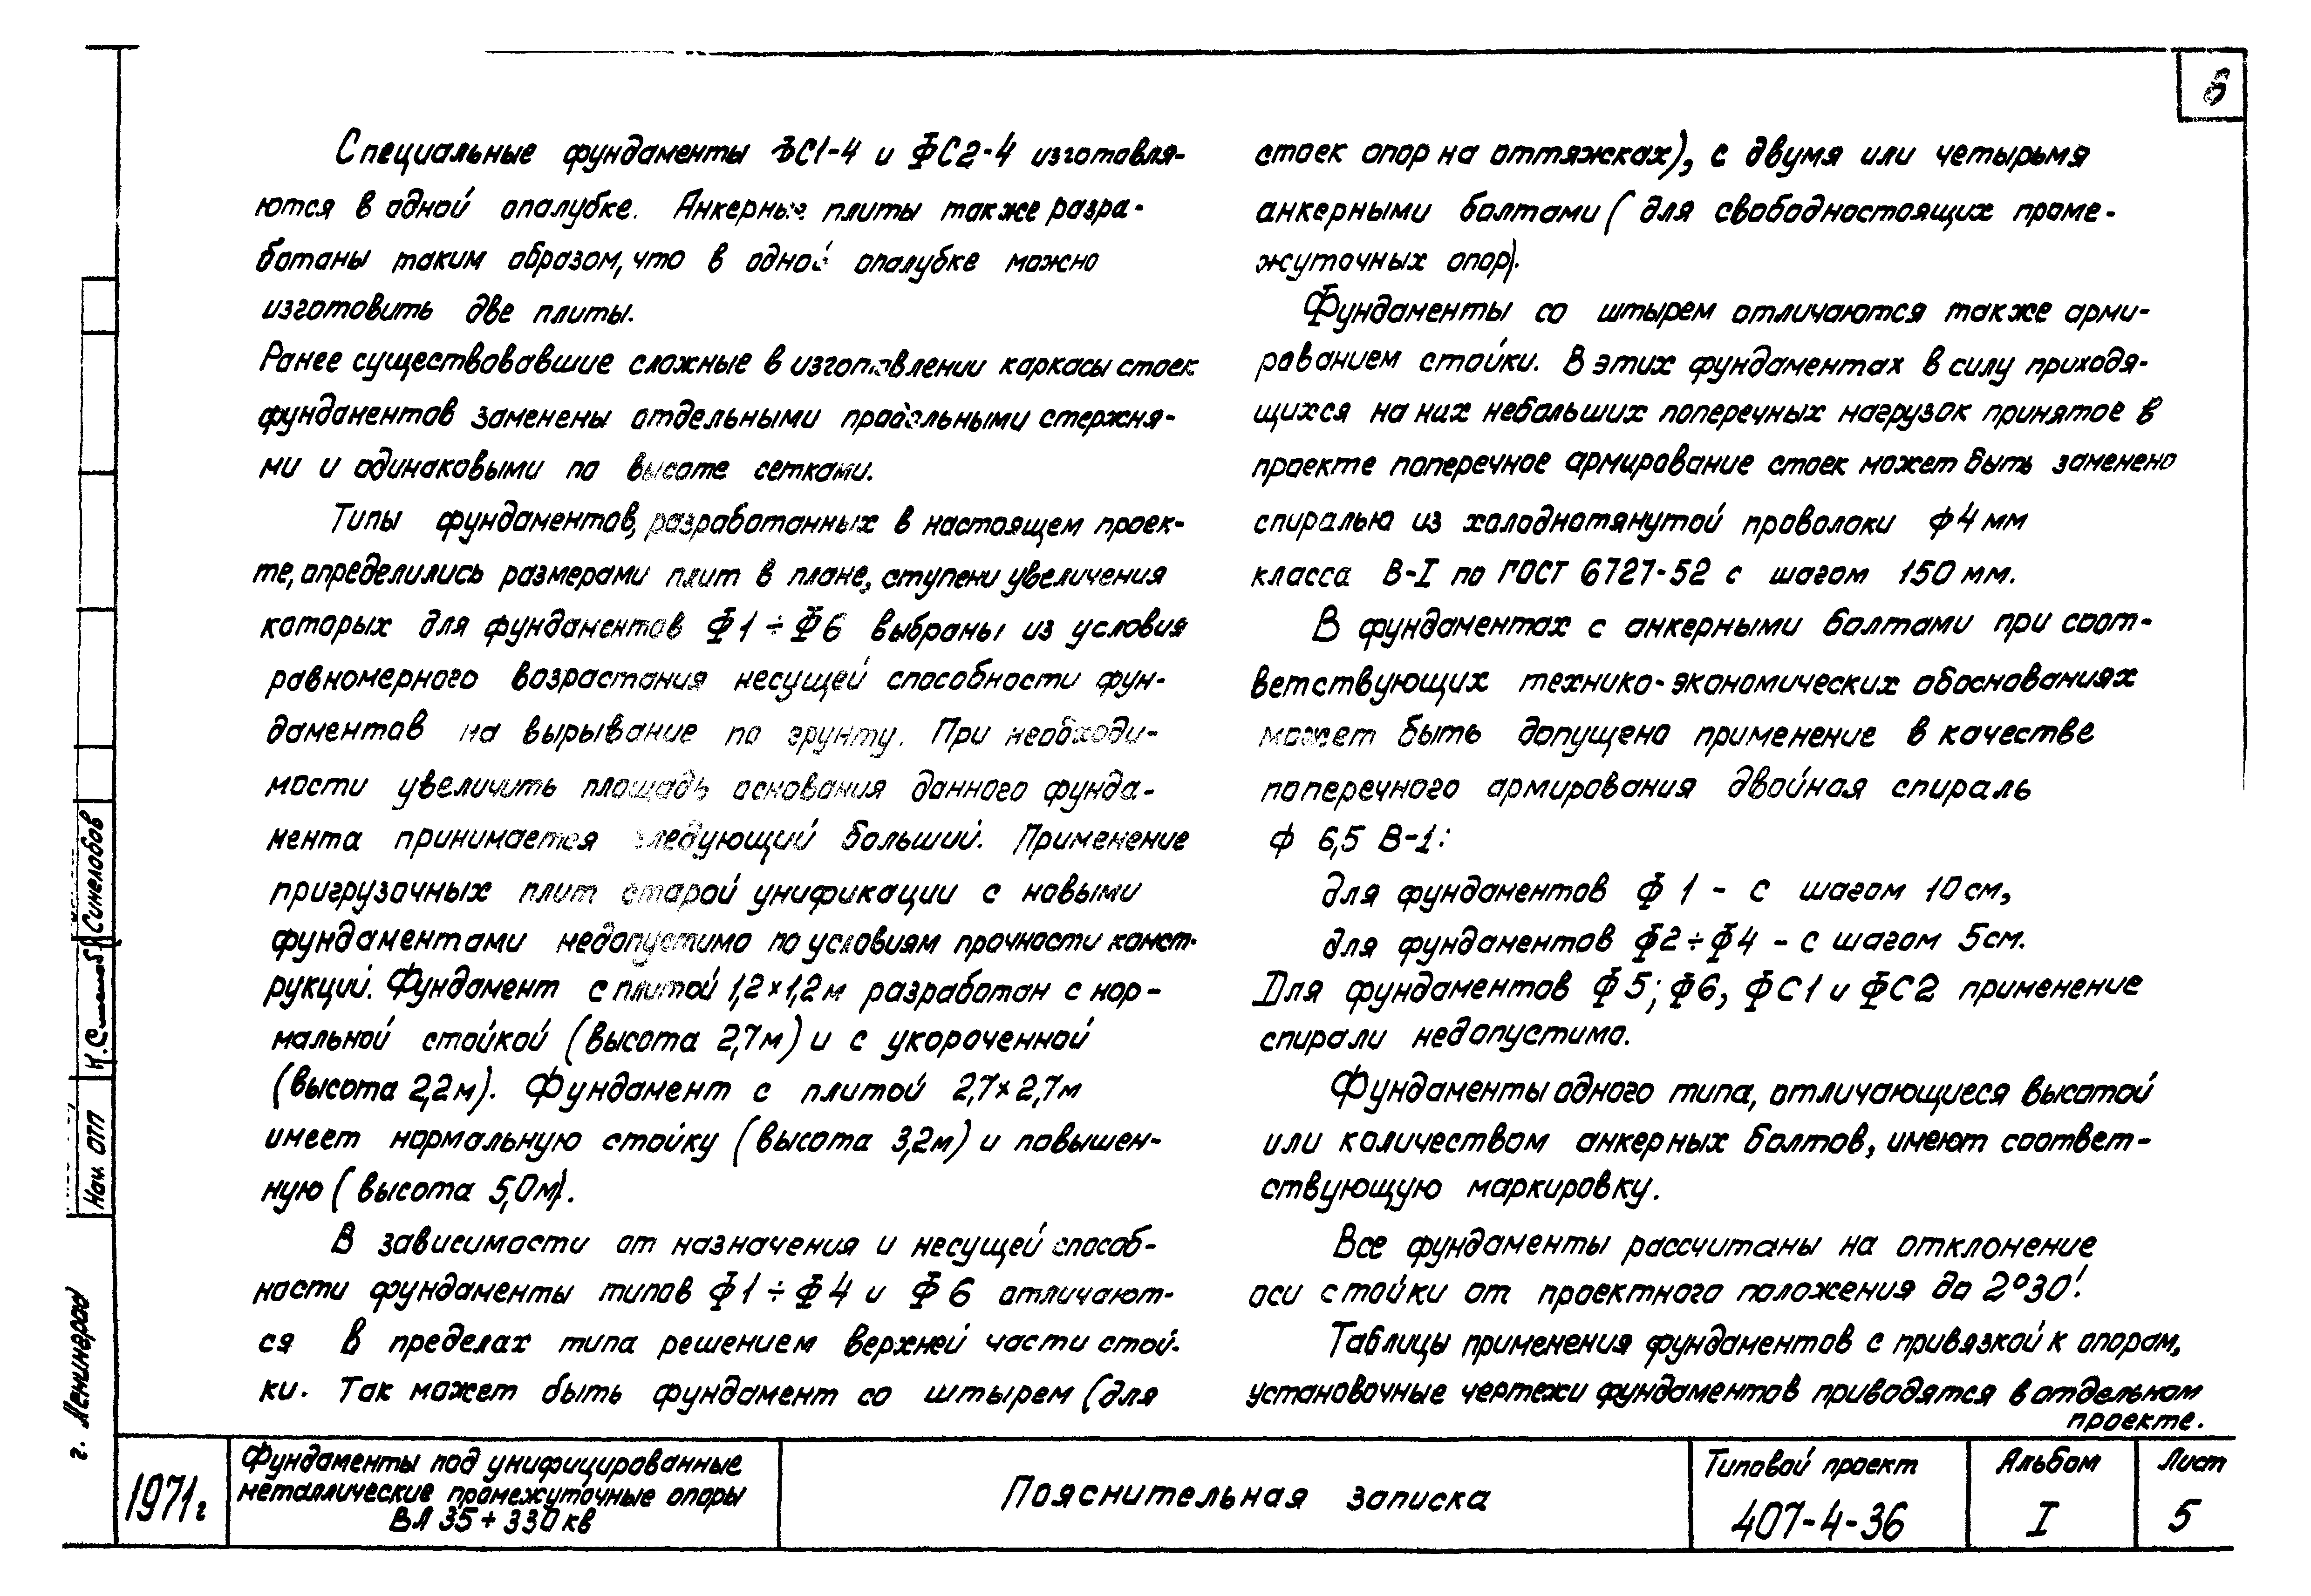 Специальные фундаменты ФС1-4 и ФС2-4 изготовля-
ются в одной опалубке. Анкерные плиты также разра-
ботаны таким образом, что в одной опалубке можно
изготовить две плиты.
Ранее существовавшие сложные в изготовлении каркасы стоек
фундаментов заменены отдельными продольными стержня-
ми и одинаковыми по высоте сетками.
Типы фундаментов, разработанных в настоящем проек-
те, определились размерами плит в плане, ступени увеличения
которых для фундаментов Ф1÷Ф6 выбраны из условия
равномерного возрастания несущей способности фун-
даментов на вырывание по грунту. При необходи-
мости увеличить площадь основания данного фунда-
мента принимается следующий больший. Применение
пригрузочных плит старой унификации с новыми
фундаментами недопустимо по условиям прочности конст-
рукций. Фундамент с плитой 1,2×1,2м разработан с нор-
мальной стойкой (высота 2,7м) и с укороченной
(высота 2,2м). Фундамент с плитой 2,7×2,7м
имеет нормальную стойку (высота 3,2м) и повышен-
ную (высота 5,0м).
В зависимости от назначения и несущей способ-
ности фундаменты типов Ф1÷Ф4 и Ф6 отличают-
ся в пределах типа решением верхней части стой-
ки. Так может быть фундамент со штырем (для
стоек опор на оттяжках), с двумя или четырьмя
анкерными болтами (для свободностоящих проме-
жуточных опор).
Фундаменты со штырем отличаются также арми-
рованием стойки. В этих фундаментах в силу приходя-
щихся на них небольших поперечных нагрузок принятое в
проекте поперечное армирование стоек может быть заменено
спиралью из холоднотянутой проволоки ф4мм
класса В-I по ГОСТ 6727-52 с шагом 150мм.
В фундаментах с анкерными болтами при соот-
ветствующих технико-экономических обоснованиях
может быть допущено применение в качестве
поперечного армирования двойная спираль
ф 6,5 В-1:
для фундаментов Ф 1 - с шагом 10см,
для фундаментов Ф2÷Ф4 - с шагом 5см.
Для фундаментов Ф5; Ф6, ФС1 и ФС2 применение
спирали недопустимо.
Фундаменты одного типа, отличающиеся высотой
или количеством анкерных болтов, имеют соответ-
ствующую маркировку.
Все фундаменты рассчитаны на отклонение
оси стойки от проектного положения до 2°30'.
Таблицы применения фундаментов с привязкой к опорам,
установочные чертежи фундаментов приводятся в отдельном
проекте.
Синелобов
Нач. ОТП
г. Ленинград
1971г
Фундаменты под унифицированные
металлические промежуточные опоры
ВЛ 35÷330кв
Пояснительная записка
Типовой проект
407-4-36
Альбом
I
Лист
5